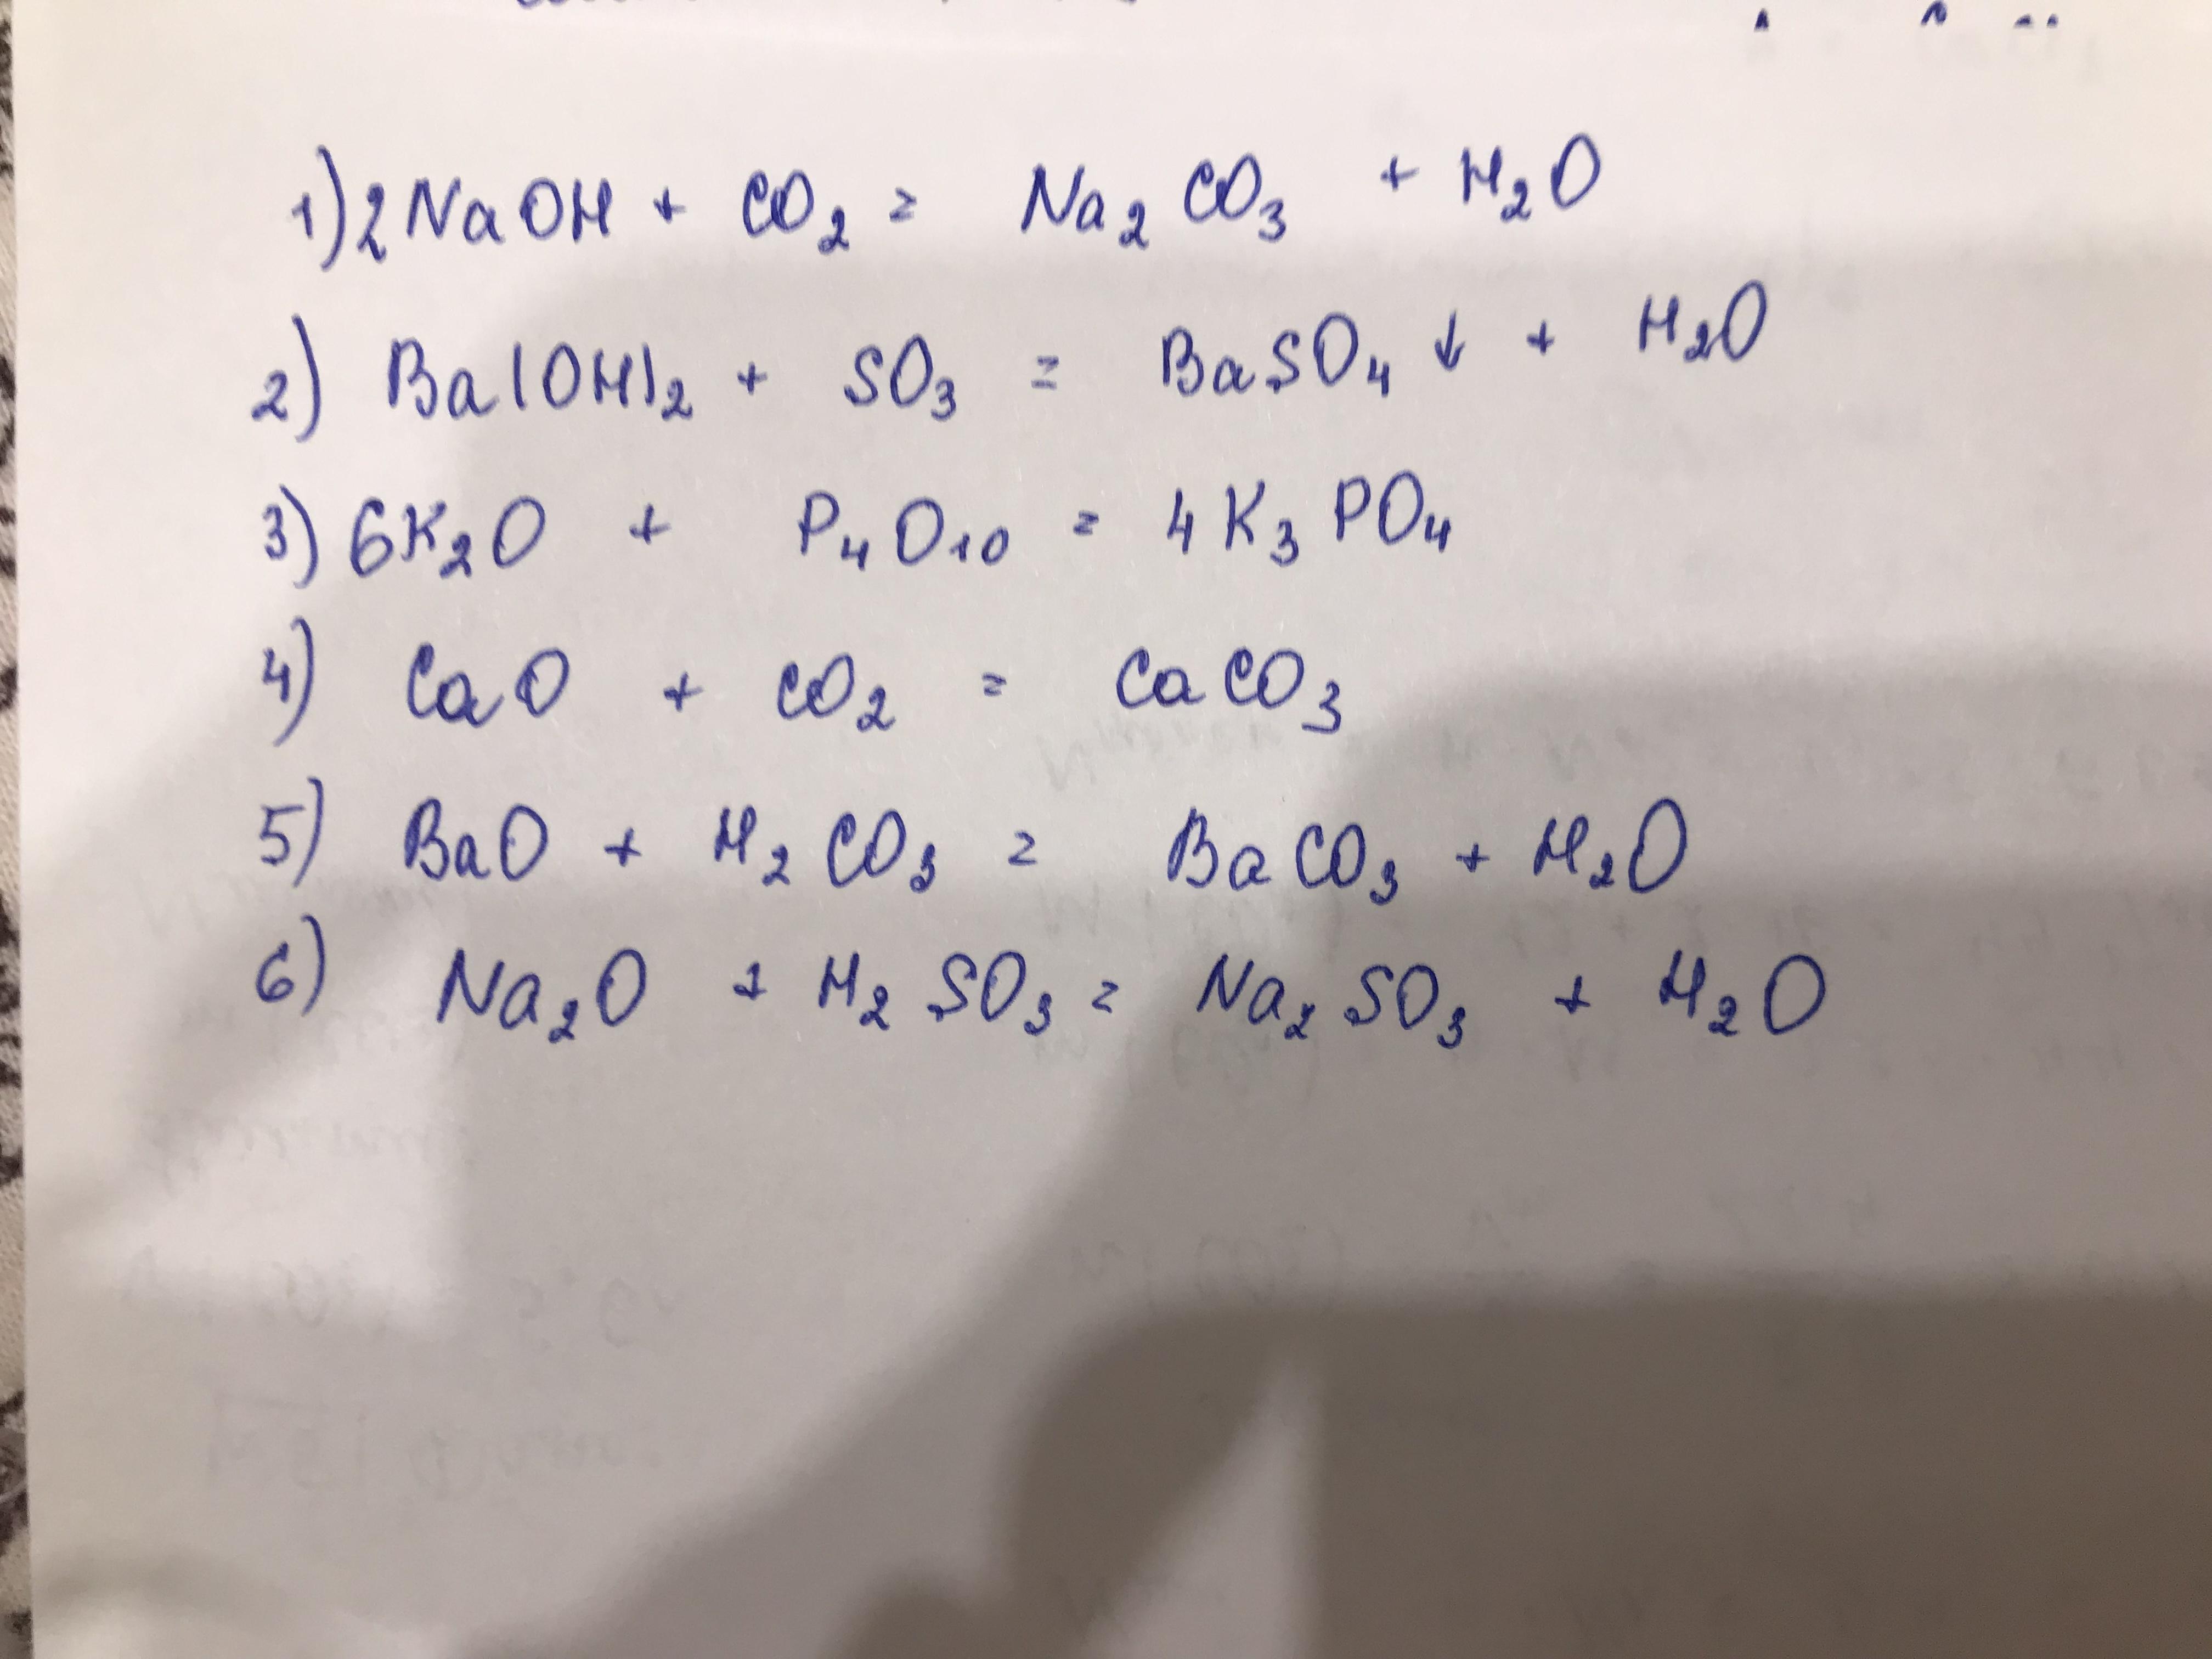 1) 2NaOH + CO₂ = Na₂CO₃ + H₂O
2) Ba(OH)₂ + SO₃ = BaSO₄ ↓ + H₂O
3) 6K₂O + P₄O₁₀ = 4K₃PO₄
4) CaO + CO₂ = CaCO₃
5) BaO + H₂CO₃ = BaCO₃ + H₂O
6) Na₂O + H₂SO₃ = Na₂SO₃ + H₂O